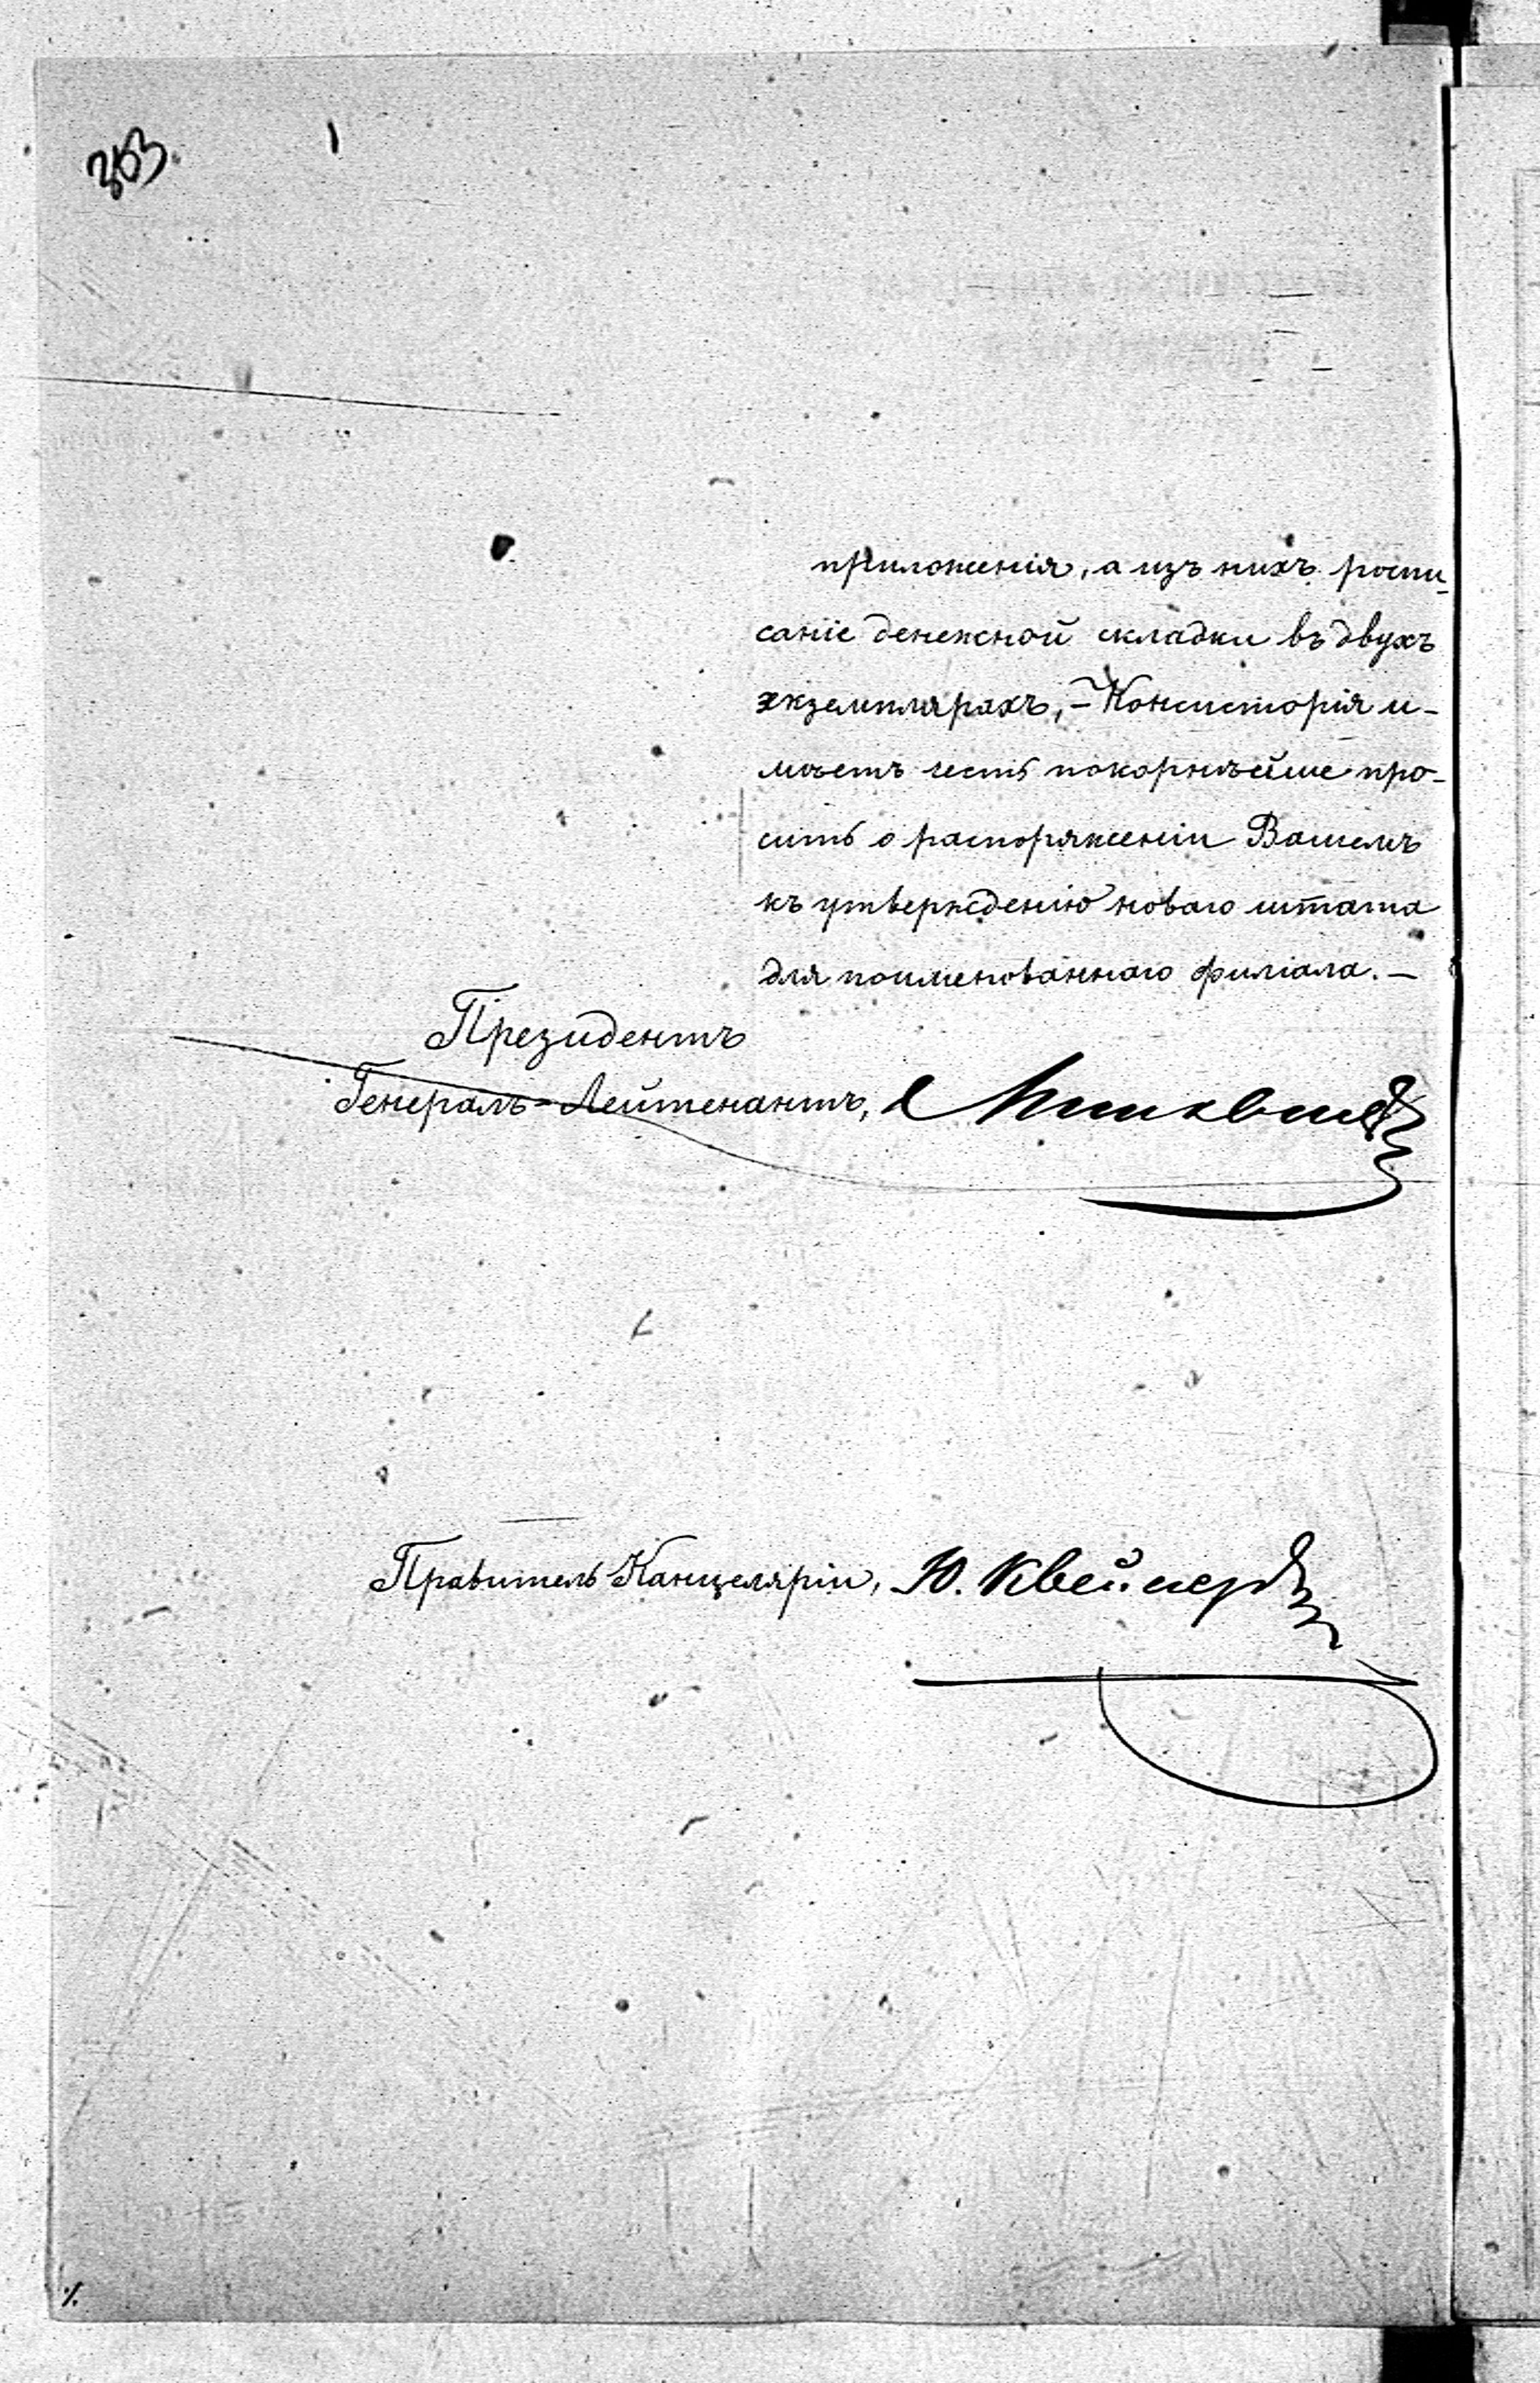 353.
приложенія, а изъ нихъ роспи-
саніе денежной складки въ двухъ
экземплярахъ, – Консисторія и-
мѣетъ честь покорнѣйше про-
сить о распоряженіи Вашемъ
къ утвержденію новаго штата
для поименованнаго филіала. –
Президентъ
Генералъ-Лейтенантъ,
Правитель Канцеляріи, Ю.